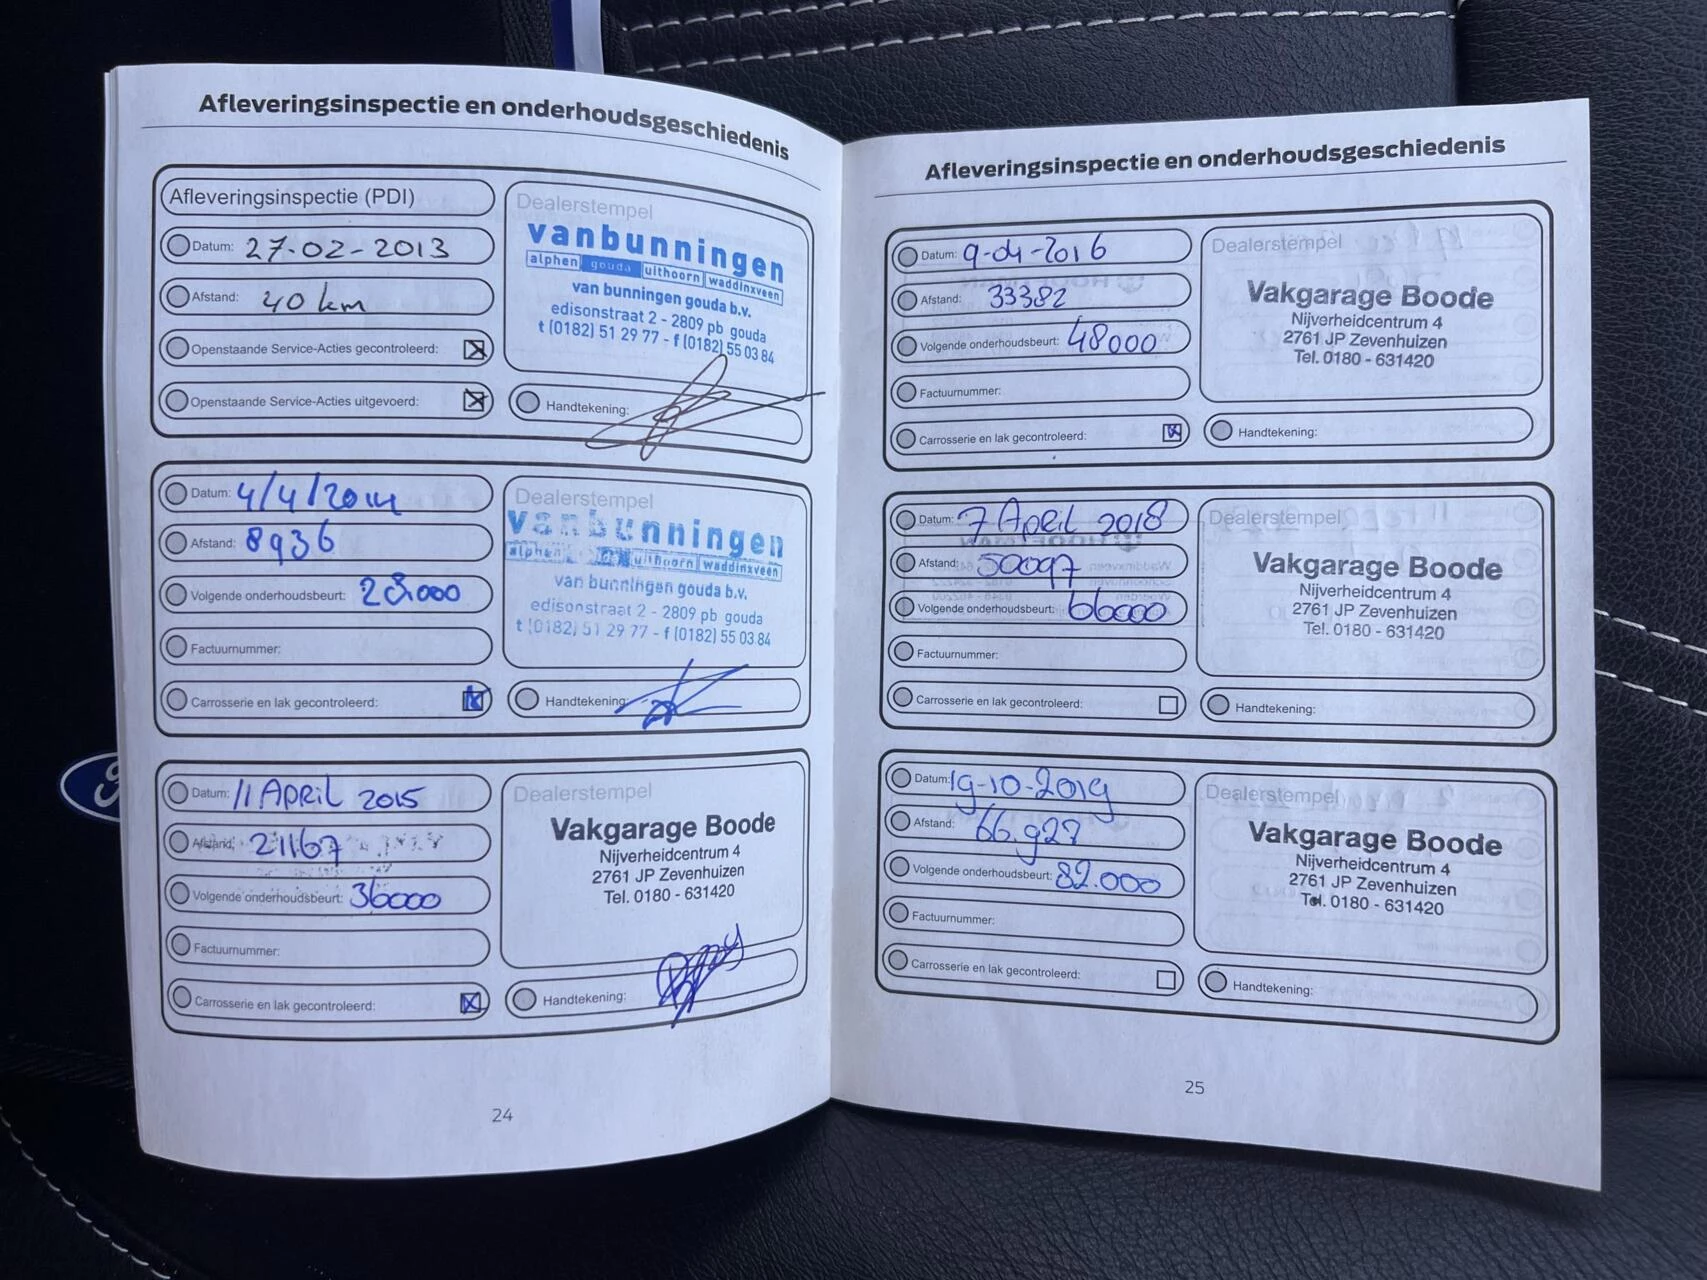 Afleveringsinspectie en onderhoudsgeschiedenis
Afleveringsinspectie (PDI)
Datum: 27-02-2013
Afstand: 40 km
Openstaande Service-Acties gecontroleerd:
Openstaande Service-Acties uitgevoerd:
Dealerstempel
vanbunningen
alphen gouda uithoorn waddinxveen
van bunningen gouda b.v.
edisonstraat 2 - 2809 pb gouda
t (0182) 51 29 77 - f (0182) 55 03 84
Handtekening:
Datum: 4/4/2014
Afstand: 8936
Volgende onderhoudsbeurt: 28000
Factuurnummer:
Carrosserie en lak gecontroleerd:
Dealerstempel
vanbunningen
alphen uithoorn waddinxveen
van bunningen gouda b.v.
edisonstraat 2 - 2809 pb gouda
t (0182) 51 29 77 - f (0182) 55 03 84
Handtekening:
Datum: 11 APRIL 2015
Afstand: 21167
Volgende onderhoudsbeurt: 36000
Factuurnummer:
Carrosserie en lak gecontroleerd:
Dealerstempel
Vakgarage Boode
Nijverheidcentrum 4
2761 JP Zevenhuizen
Tel. 0180 - 631420
Handtekening:
24
Afleveringsinspectie en onderhoudsgeschiedenis
Datum: 9-04-2016
Afstand: 33382
Volgende onderhoudsbeurt: 48000
Factuurnummer:
Carrosserie en lak gecontroleerd:
Dealerstempel
Vakgarage Boode
Nijverheidcentrum 4
2761 JP Zevenhuizen
Tel. 0180 - 631420
Handtekening:
Datum: 7 April 2018
Afstand: 50097
Volgende onderhoudsbeurt: 66000
Factuurnummer:
Carrosserie en lak gecontroleerd:
Dealerstempel
Vakgarage Boode
Nijverheidcentrum 4
2761 JP Zevenhuizen
Tel. 0180 - 631420
Handtekening:
Datum: 19-10-2019
Afstand: 66.927
Volgende onderhoudsbeurt: 82.000
Factuurnummer:
Carrosserie en lak gecontroleerd:
Dealerstempel
Vakgarage Boode
Nijverheidcentrum 4
2761 JP Zevenhuizen
Tel. 0180 - 631420
Handtekening:
25